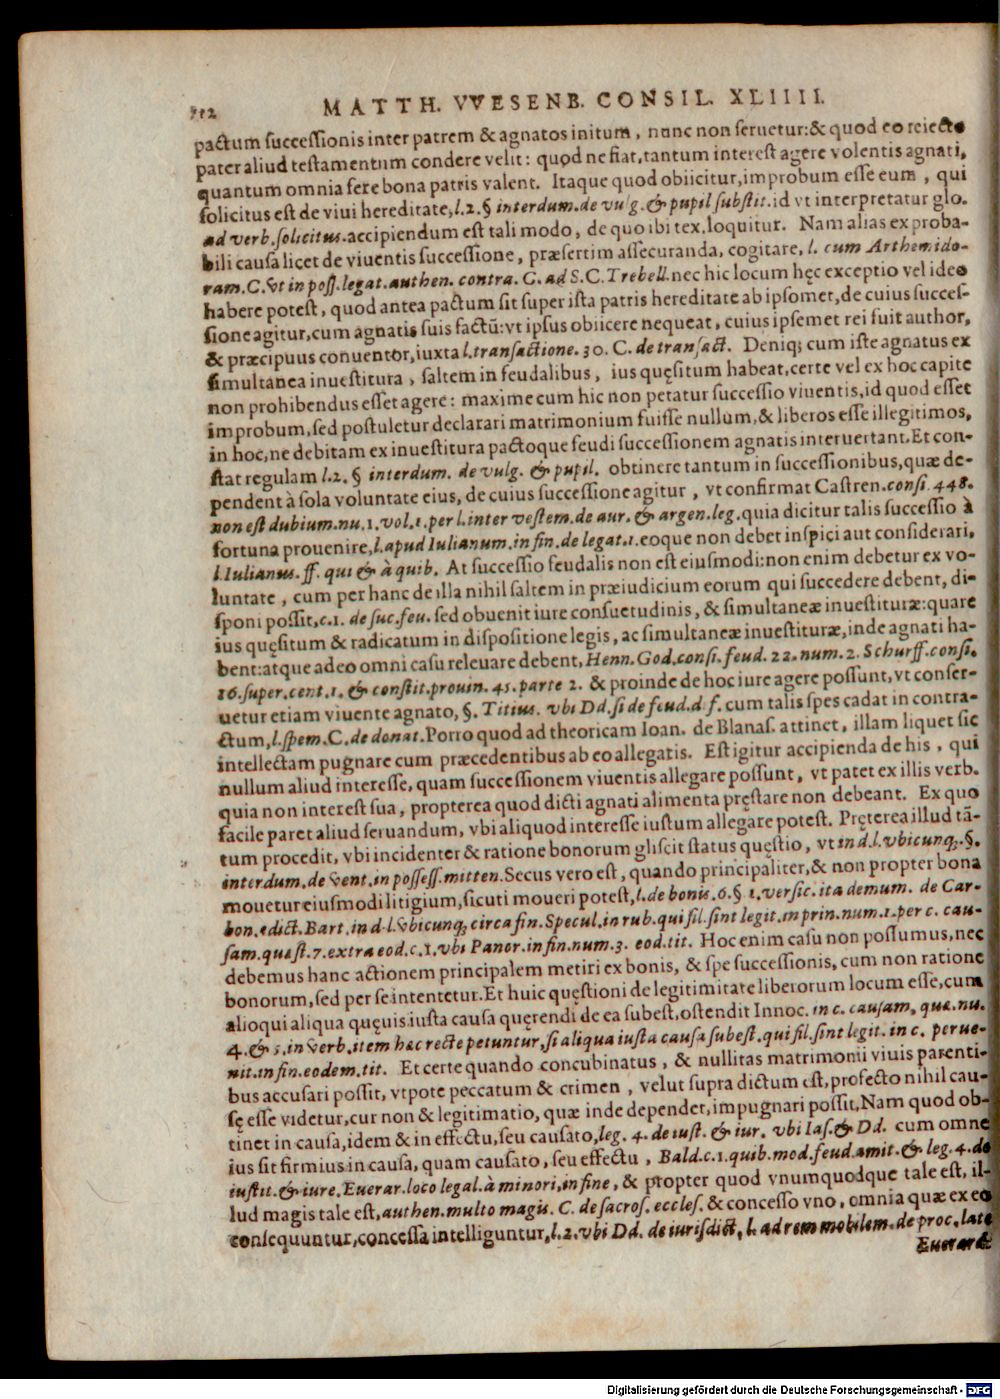 512 MATTH. VVESENB. CONSIL. XLIIII.
pactum successionis inter patrem & agnatos initum, nunc non seruetur: & quod eo reiecto
pater aliud testamentum condere velit: quod ne fiat, tantum interest agere volentis agnati,
quantum omnia fere bona patris valent. Itaque quod obiicitur, improbum esse eum, qui
solicitus est de viui hereditate, l.2. § interdum. de vulg. & pupil substit. id vt interpretatur glo.
ad verb. solicitus. accipiendum est tali modo, de quo ibi tex. loquitur. Nam alias ex proba-
bili causa licet de viuentis successione, præsertim assecuranda, cogitare, l. cum Arthemido-
ram. C. vt in poss. legat. authen. contra. C. ad S.C. Trebell. nec hic locum hęc exceptio vel ideo
habere potest, quod antea pactum sit super ista patris hereditate ab ipsomet, de cuius succes-
sione agitur, cum agnatis suis factū: vt ipsus obiicere nequeat, cuius ipsemet rei fuit author,
& præcipuus conuentor, iuxta l. transactione. 30. C. de transact. Deniq; cum iste agnatus ex
simultanea inuestitura, saltem in feudalibus, ius quęsitum habeat, certe vel ex hoc capite
non prohibendus esset agere: maxime cum hic non petatur successio viuentis, id quod esset
improbum, sed postuletur declarari matrimonium fuisse nullum, & liberos esse illegitimos,
in hoc, ne debitam ex inuestitura pactoque feudi successionem agnatis interuertant. Et con-
stat regulam l.2. § interdum. de vulg. & pupil. obtinere tantum in successionibus, quæ de-
pendent à sola voluntate eius, de cuius successione agitur, vt confirmat Castren. consi. 448.
non est dubium. nu. 1. vol. 1. per l. inter vestem. de aur. & argen. leg. quia dicitur talis successio à
fortuna prouenire, l. apud Iulianum. in fin. de legat. 1. eoque non debet inspici aut considerari,
l. Iulianus. ff. qui & à quib. At successio feudalis non est eiusmodi: non enim debetur ex vo-
luntate, cum per hanc de illa nihil saltem in præiudicium eorum qui succedere debent, di-
sponi possit, c.1. de suc. feu. sed obuenit iure consuetudinis, & simultaneæ inuestituræ: quare
ius quęsitum & radicatum in dispositione legis, ac simultaneæ inuestituræ, inde agnati ha-
bent: atque adeo omni casu releuare debent, Henn. God. consi. feud. 22. num. 2. Schurff. consi.
16. super. cent. 1. & constit. prouin. 45. parte 2. & proinde de hoc iure agere possunt, vt conser-
uetur etiam viuente agnato, §. Titius. vbi Dd. si de feud. d f. cum talis spes cadat in contra-
ctum, l. spem. C. de donat. Porro quod ad theoricam Ioan. de Blanas. attinet, illam liquet sic
intellectam pugnare cum præcedentibus ab eo allegatis. Est igitur accipienda de his, qui
nullum aliud interesse, quam successionem viuentis allegare possunt, vt patet ex illis verb.
quia non interest sua, propterea quod dicti agnati alimenta pręstare non debeant. Ex quo
facile paret aliud seruandum, vbi aliquod interesse iustum allegare potest. Pręterea illud tā-
tum procedit, vbi incidenter & ratione bonorum gliscit status quęstio, vt in d. l. vbicunq;. §.
interdum. de vent. in possess. mitten. Secus vero est, quando principaliter, & non propter bona
mouetur eiusmodi litigium, sicuti moueri potest, l. de bonis. 6. § 1. versic. ita demum. de Car-
bon. edict. Bart. in d. l. vbicunq; circa fin. Specul. in rub. qui fil. sint legit. in prin. num. 1. per c. cau-
sam. quæst. 7. extra eod. c. 1. vbi Panor. in fin. num. 3. eod. tit. Hoc enim casu non possumus, nec
debemus hanc actionem principalem metiri ex bonis, & spe successionis, cum non ratione
bonorum, sed per se intentetur. Et huic quęstioni de legitimitate liberorum locum esse, cum
alioqui aliqua quęuis iusta causa quęrendi de ea subest, ostendit Innoc. in c. causam, quæ. nu.
4. & 5. in verb. item hæc recte petuntur, si aliqua iusta causa subest. qui fil. sint legit. in c. perue-
nit. in fin. eodem. tit. Et certe quando concubinatus, & nullitas matrimonii viuis parenti-
bus accusari possit, vtpote peccatum & crimen, velut supra dictum est, profecto nihil cau-
sę esse videtur, cur non & legitimatio, quæ inde dependet, impugnari possit. Nam quod ob-
tinet in causa, idem & in effectu, seu causato, leg. 4. de iust. & iur. vbi Ias. & Dd. cum omne
ius sit firmius in causa, quam causato, seu effectu, Bald. c. 1. quib. mod. feud. amit. & leg. 4. de
iustit. & iure. Euerar. loco legal. à minori, in fine, & propter quod vnumquodque tale est, il-
lud magis tale est, authen. multo magis. C. de sacros. eccles. & concesso vno, omnia quæ ex eo
consequuntur, concessa intelliguntur, l. 2. vbi Dd. de iurisdict, l. ad rem mobilem. de proc. late
Euerard.
Digitalisierung gefördert durch die Deutsche Forschungsgemeinschaft - DFG